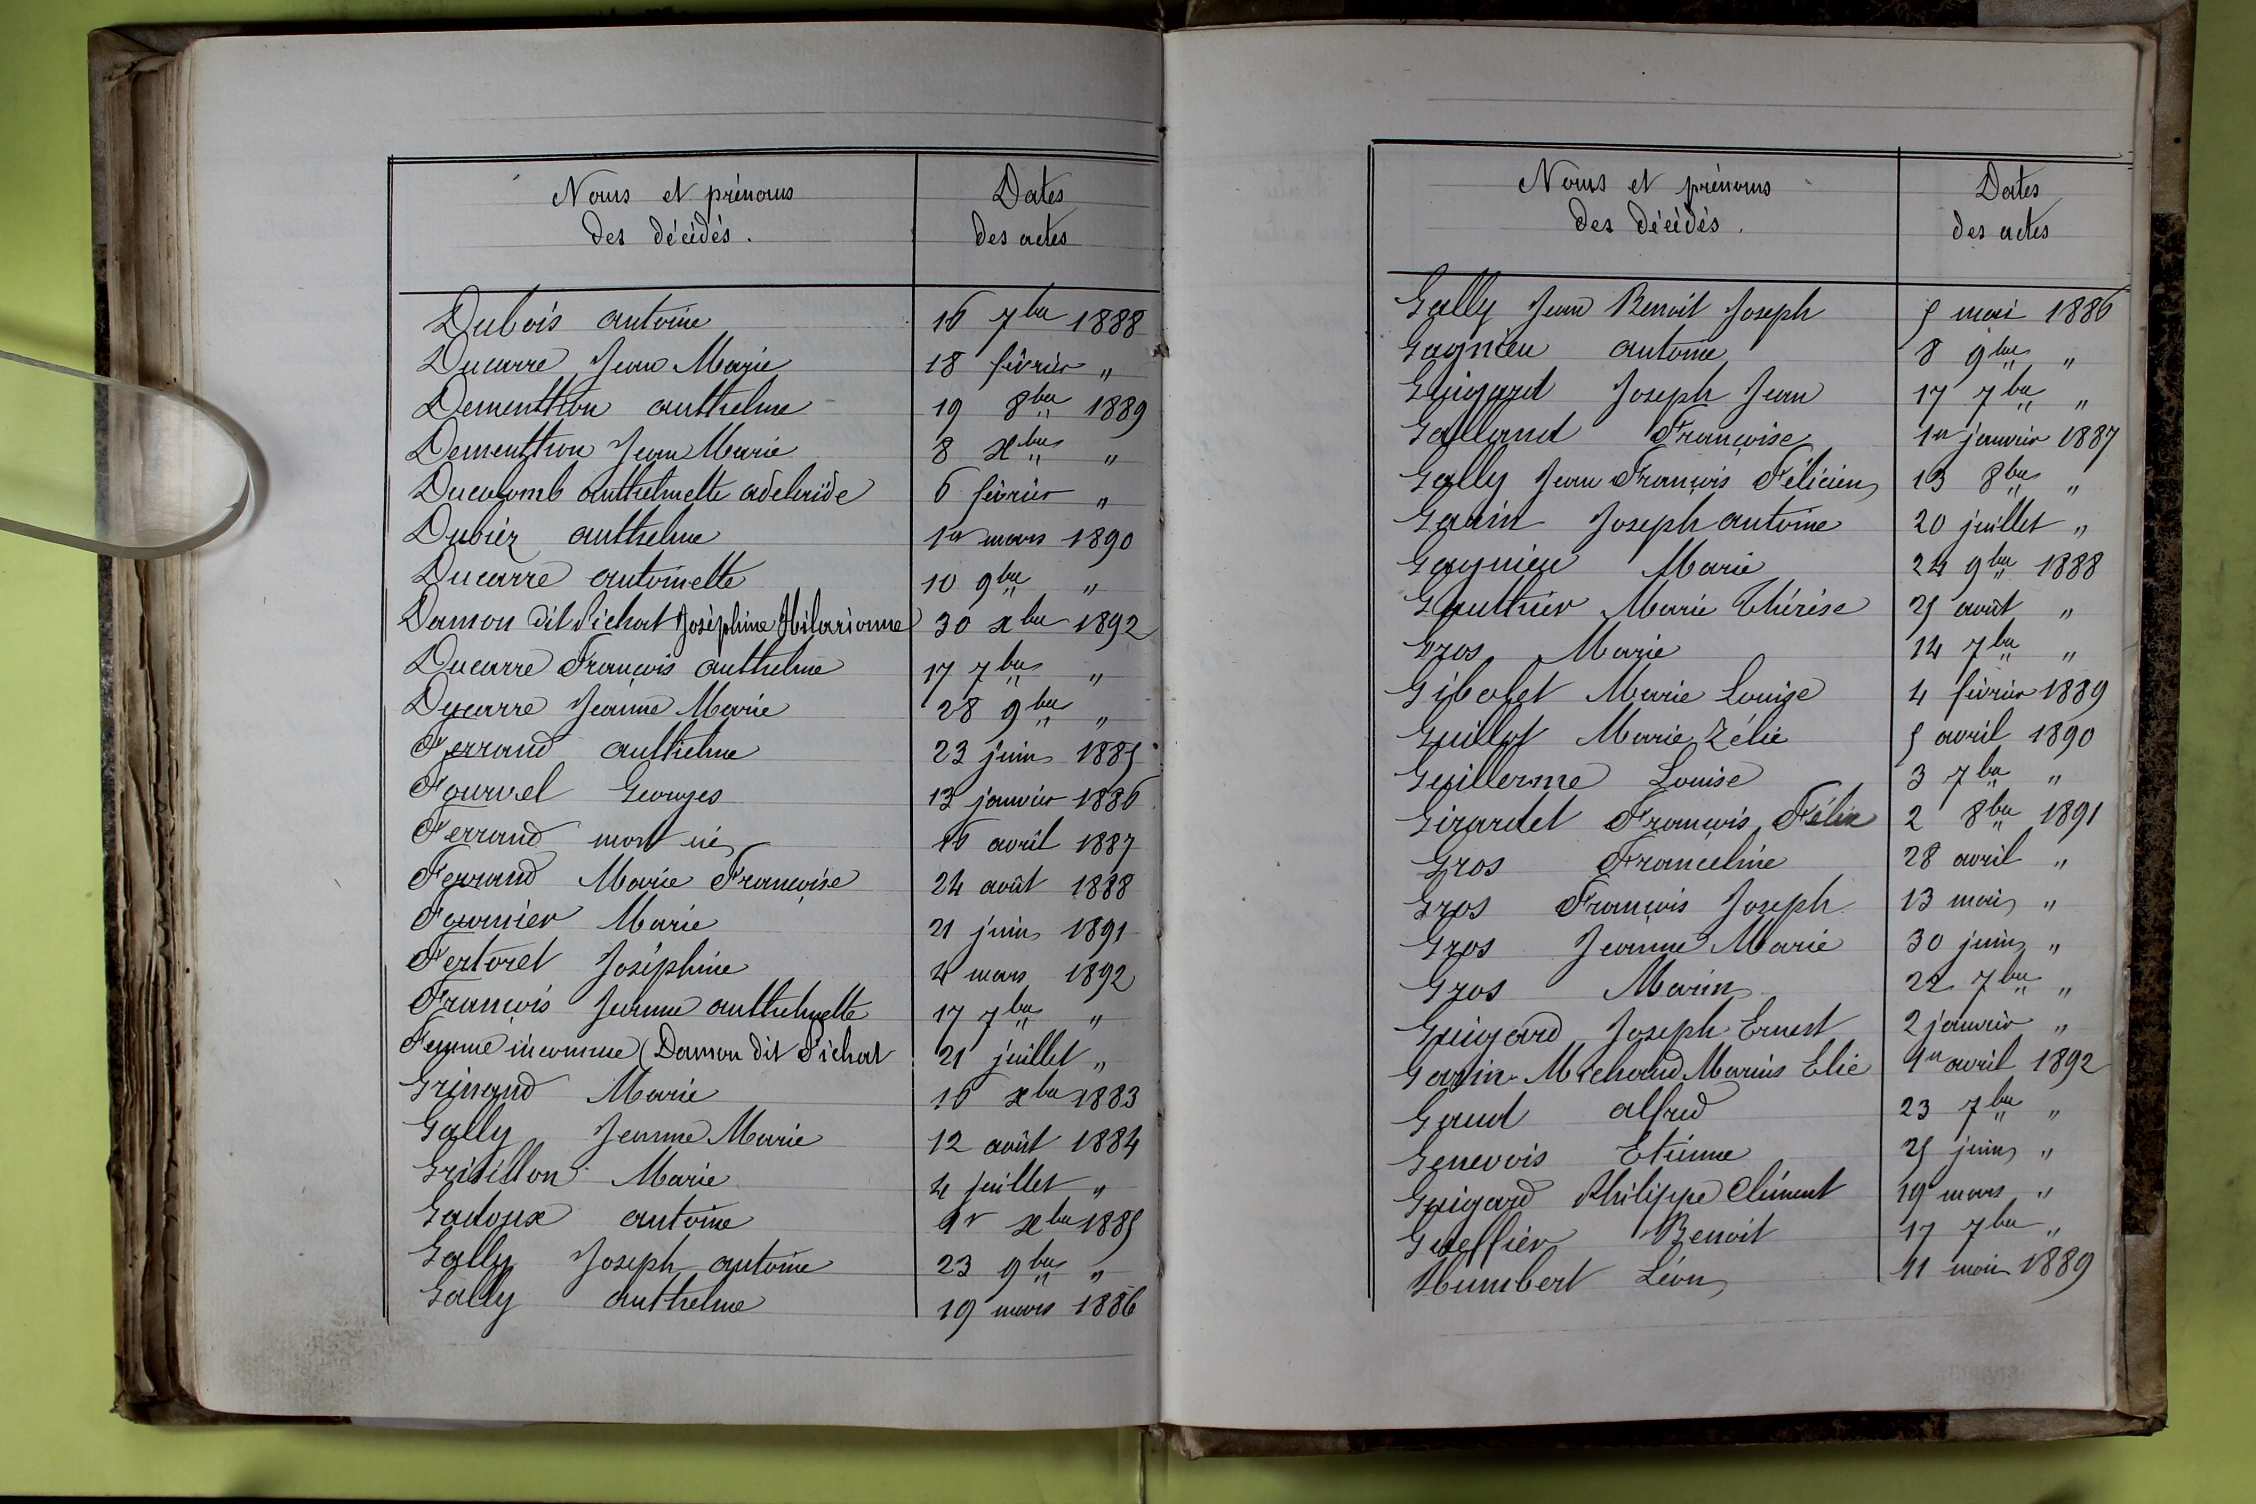 Noms et prénoms
des décédés.
Dates
des actes
Dubois antoine 16 7bre 1888
Ducarre Jean Marie 18 février "
Dementhon anthelme 19 8bre 1889
Dementhon Jean Marie 8 xbre "
Ducolomb anthelmette adelaïde 6 février "
Dubiez anthelme 1er mars 1890
Ducarre antoinette 10 9bre "
Damon dit Pichat Joséphine Hilarionne 30 xbre 1892
Ducarre François anthelme 17 7bre "
Ducarre Jeanne Marie 28 9bre "
Ferrand anthelme 23 juin 1885
Fournel Georges 13 janvier 1886
Ferrand mort né 16 avril 1887
Ferrand Marie Françoise 24 août 1888
Fournier Marie 21 juin 1891
Fertoret Joséphine 4 mars 1892
François Jeanne anthelmette 17 7bre "
Femme inconnue (Damon dit Pichat 21 juillet "
Grinand Marie 16 xbre 1883
Gally Jeanne Marie 12 août 1884
Grisillon Marie 4 juillet "
Gadoux antoine 1er xbre 1885
Gally Joseph antoine 23 9bre "
Gally anthelme 19 mars 1886
Noms et prénoms
des décédés.
Dates
des actes
Gally Jean Benoit Joseph 5 mai 1886
Gagnieu antoine 8 9bre "
Guigard Joseph Jean 17 7bre "
Galland Françoise 1er janvier 1887
Gally Jean François Félicien 13 8bre "
Garin Joseph antoine 20 juillet "
Gagnieu Marie 24 9bre 1888
Gauthier Marie Thérèse 25 août "
Gros Marie 14 7bre "
Gibolet Marie Louise 4 février 1889
Guillot Marie Zélie 5 avril 1890
Guillerme Louise 3 7bre "
Girardet François Félix 2 8bre 1891
Gros Franceline 28 avril "
Gros François Joseph 13 mai "
Gros Jeanne Marie 30 juin "
Gros Marin 22 7bre "
Guigard Joseph Ernest 2 janvier "
Garin-Michaud Marius Elie 1er avril 1892
Gaud alfred 23 7bre "
Genevois Etienne 25 juin "
Guigard Philippe Clément 19 mars "
Gueffier Benoit 17 7bre "
Humbert Léon 11 mai 1889